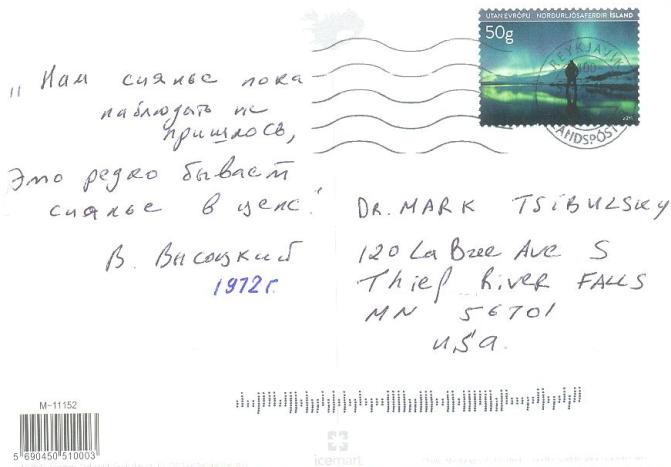 UTAN EVRÓPU NORÐURLJÓSAFERÐIR ÍSLAND
50g
REYKJAVÍK
ÍSLANDSPÓSTUR
„Нам сиянье пока
наблюдать не
пришлось,
Это редко бывает
сиянье в цене."
В. Высоцкий
1972 г.
DR. MARK TSIBULSKY
120 La Bree Ave S
Thief River FALLS
MN 56701
USA.
M-11152
5 690450 510003
icemart